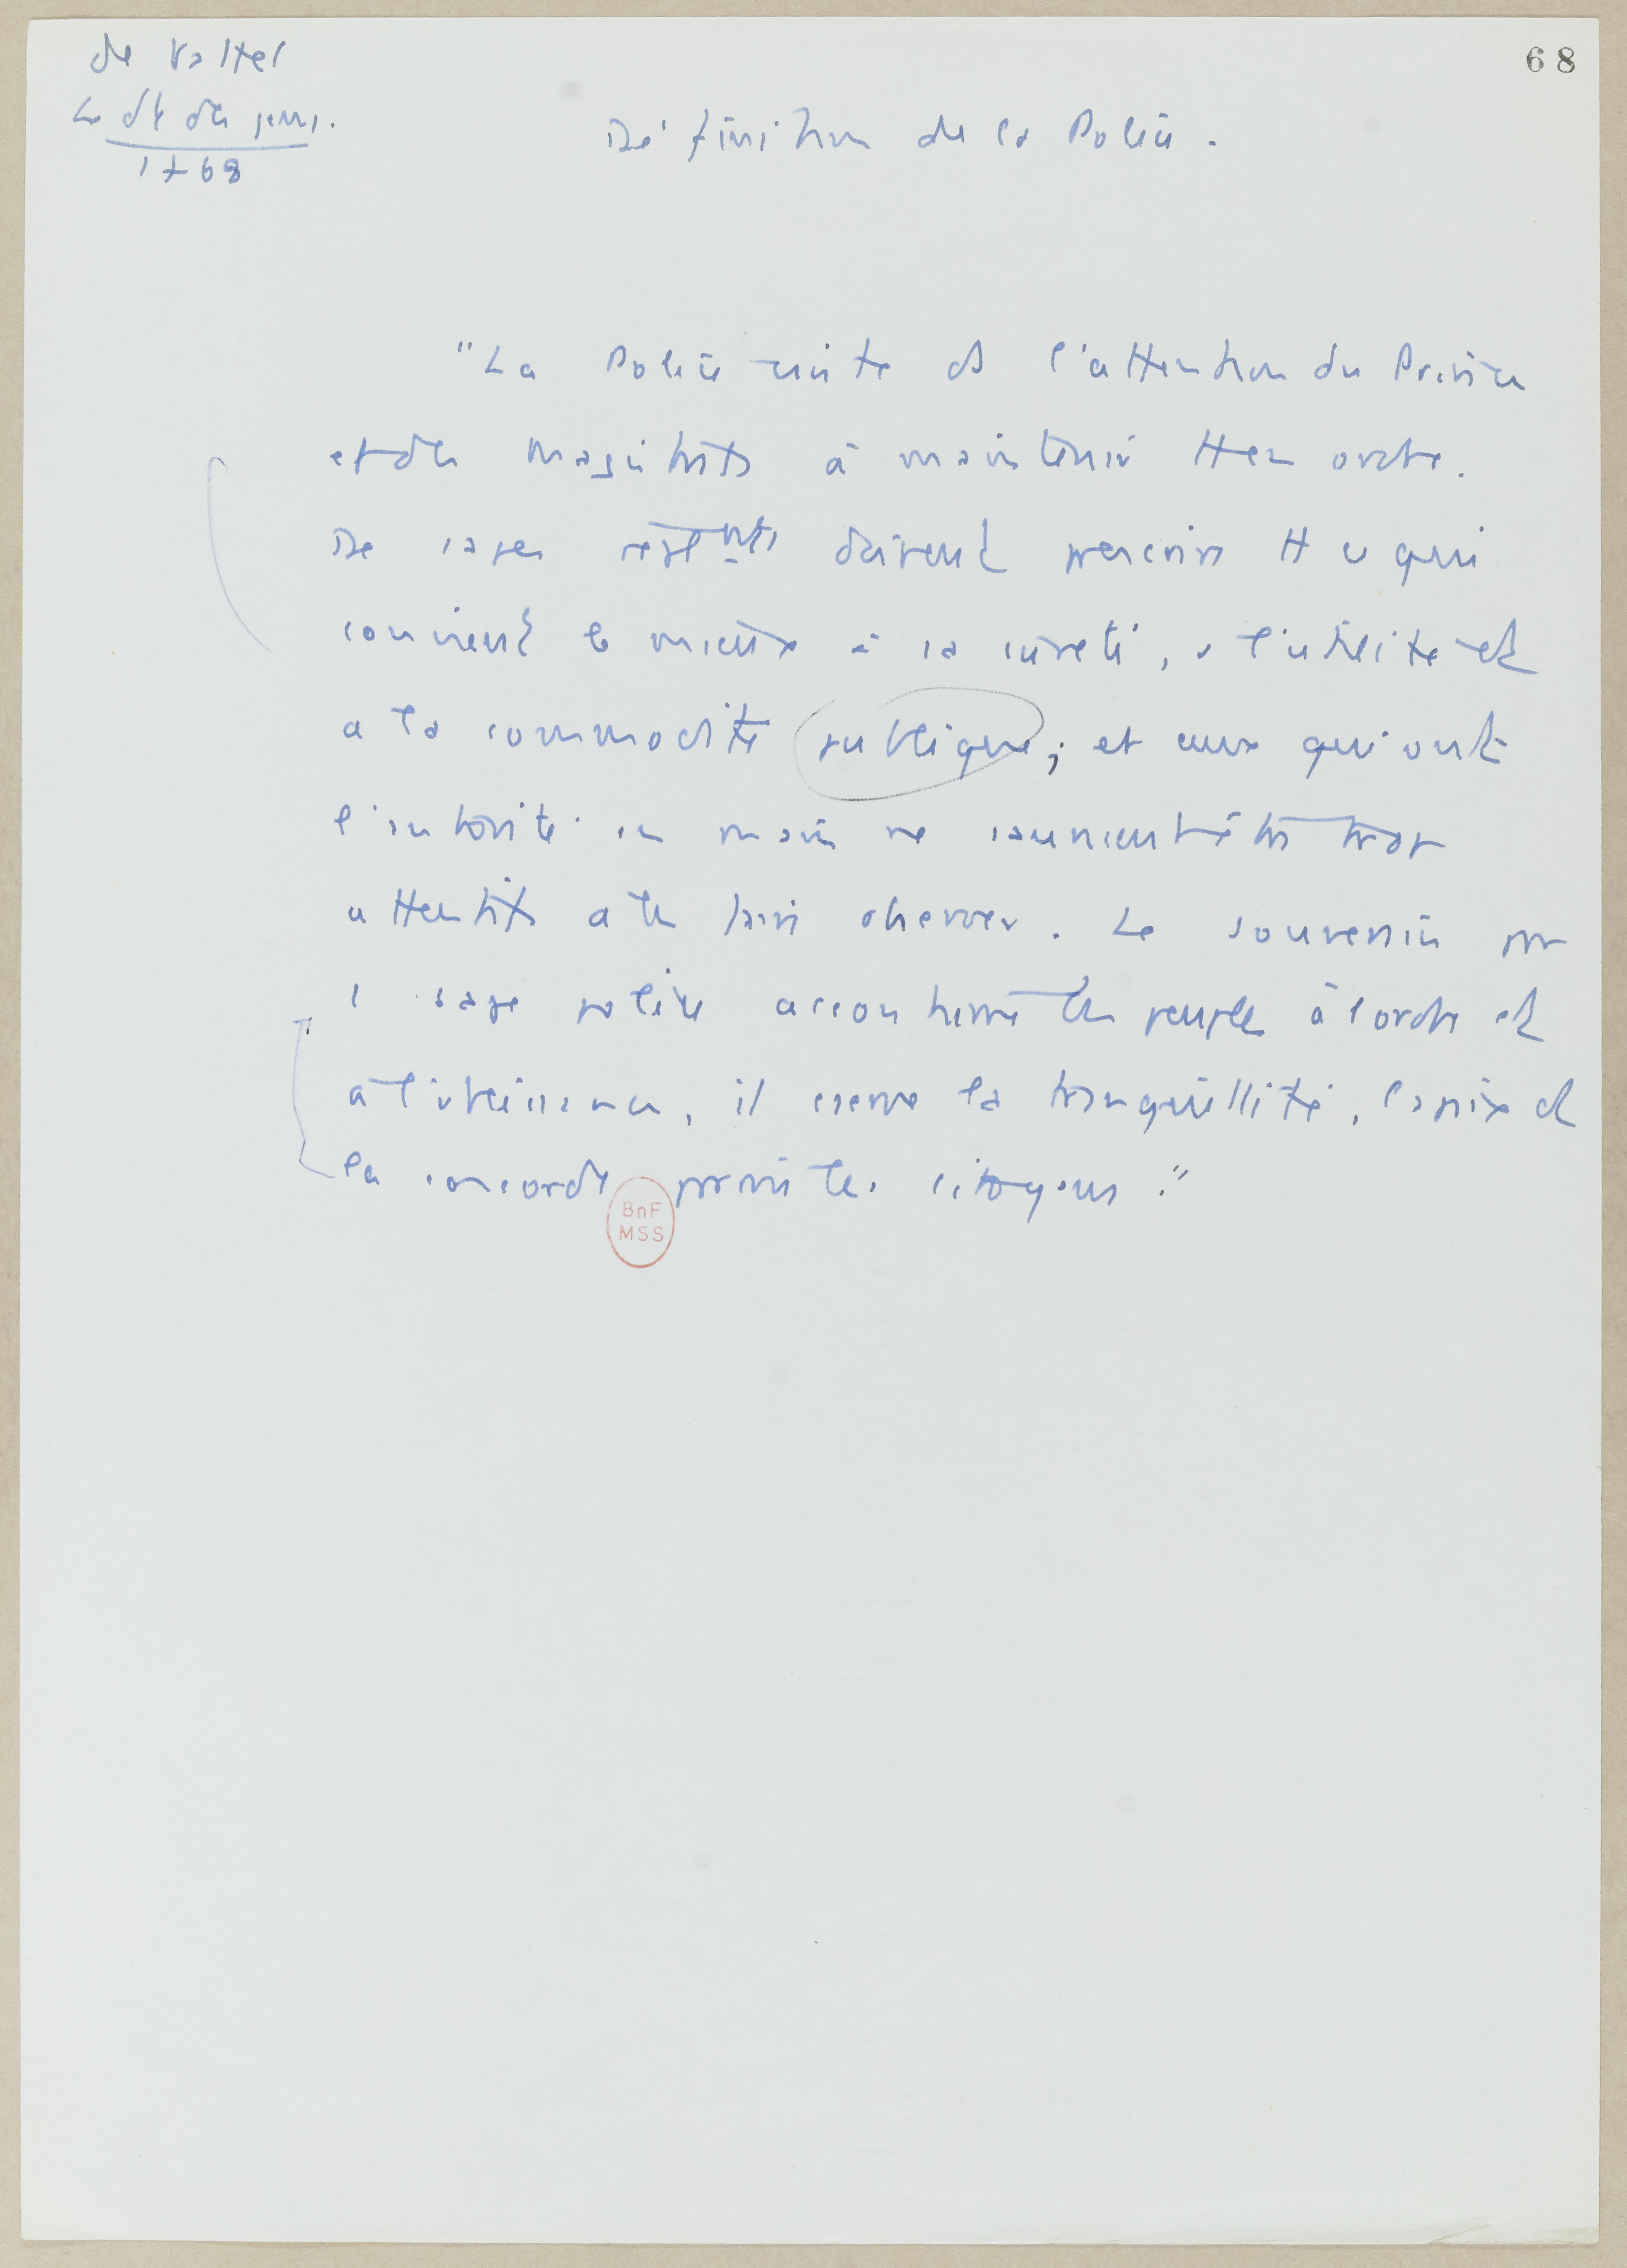 de Vattel
Le dt des gens.
1768
68
Définition de la Police.
"La Police consiste ds l'attention du Prince
et des Magistrats à maintenir tt en ordre.
De sages règlemnts doivent prescrire tt ce qui
convient le mieux à la sûreté, à l'utilité et
à la commodité publique; et ceux qui ont
l'autorité en main ne sauraient être trop
attentifs à les faire observer. Le souverain par
1 sage police accoutume les peuples à l'ordre et
à l'obéissance, il conserve la tranquillité, la paix et
la concorde parmi les citoyens."
BnF
MSS